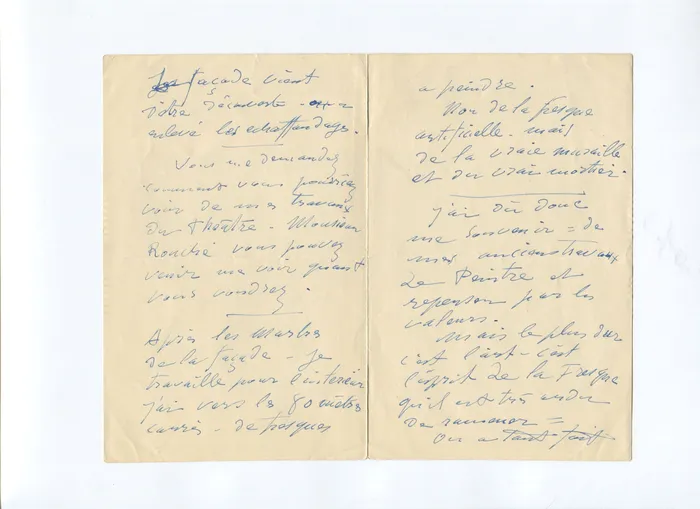 façade vient
d'être découverte - on a
enlevé les echaffaudages.
Vous me demandez
comment vous pourriez
voir de mes travaux
du théâtre - Monsieur
Rouché vous pouvez
venir me voir quant
vous voudrez.
Après les marbres
de la façade - je
travaille pour l'interieur
j'ai vers les 80 mètres
carrés - de fresques
a peindre.
Non de la fresque
artificielle - mais
de la vraie muraille
et du vrai mortier.
j'ai dû donc
me souvenir = de
mes anciens travaux
de Peintre et
repenser par les
valeurs.
Mais le plus dur
c'est l'art - c'est
l'esprit de la Fresque
qu'il est très ardu
de ramener =
On a tant fait